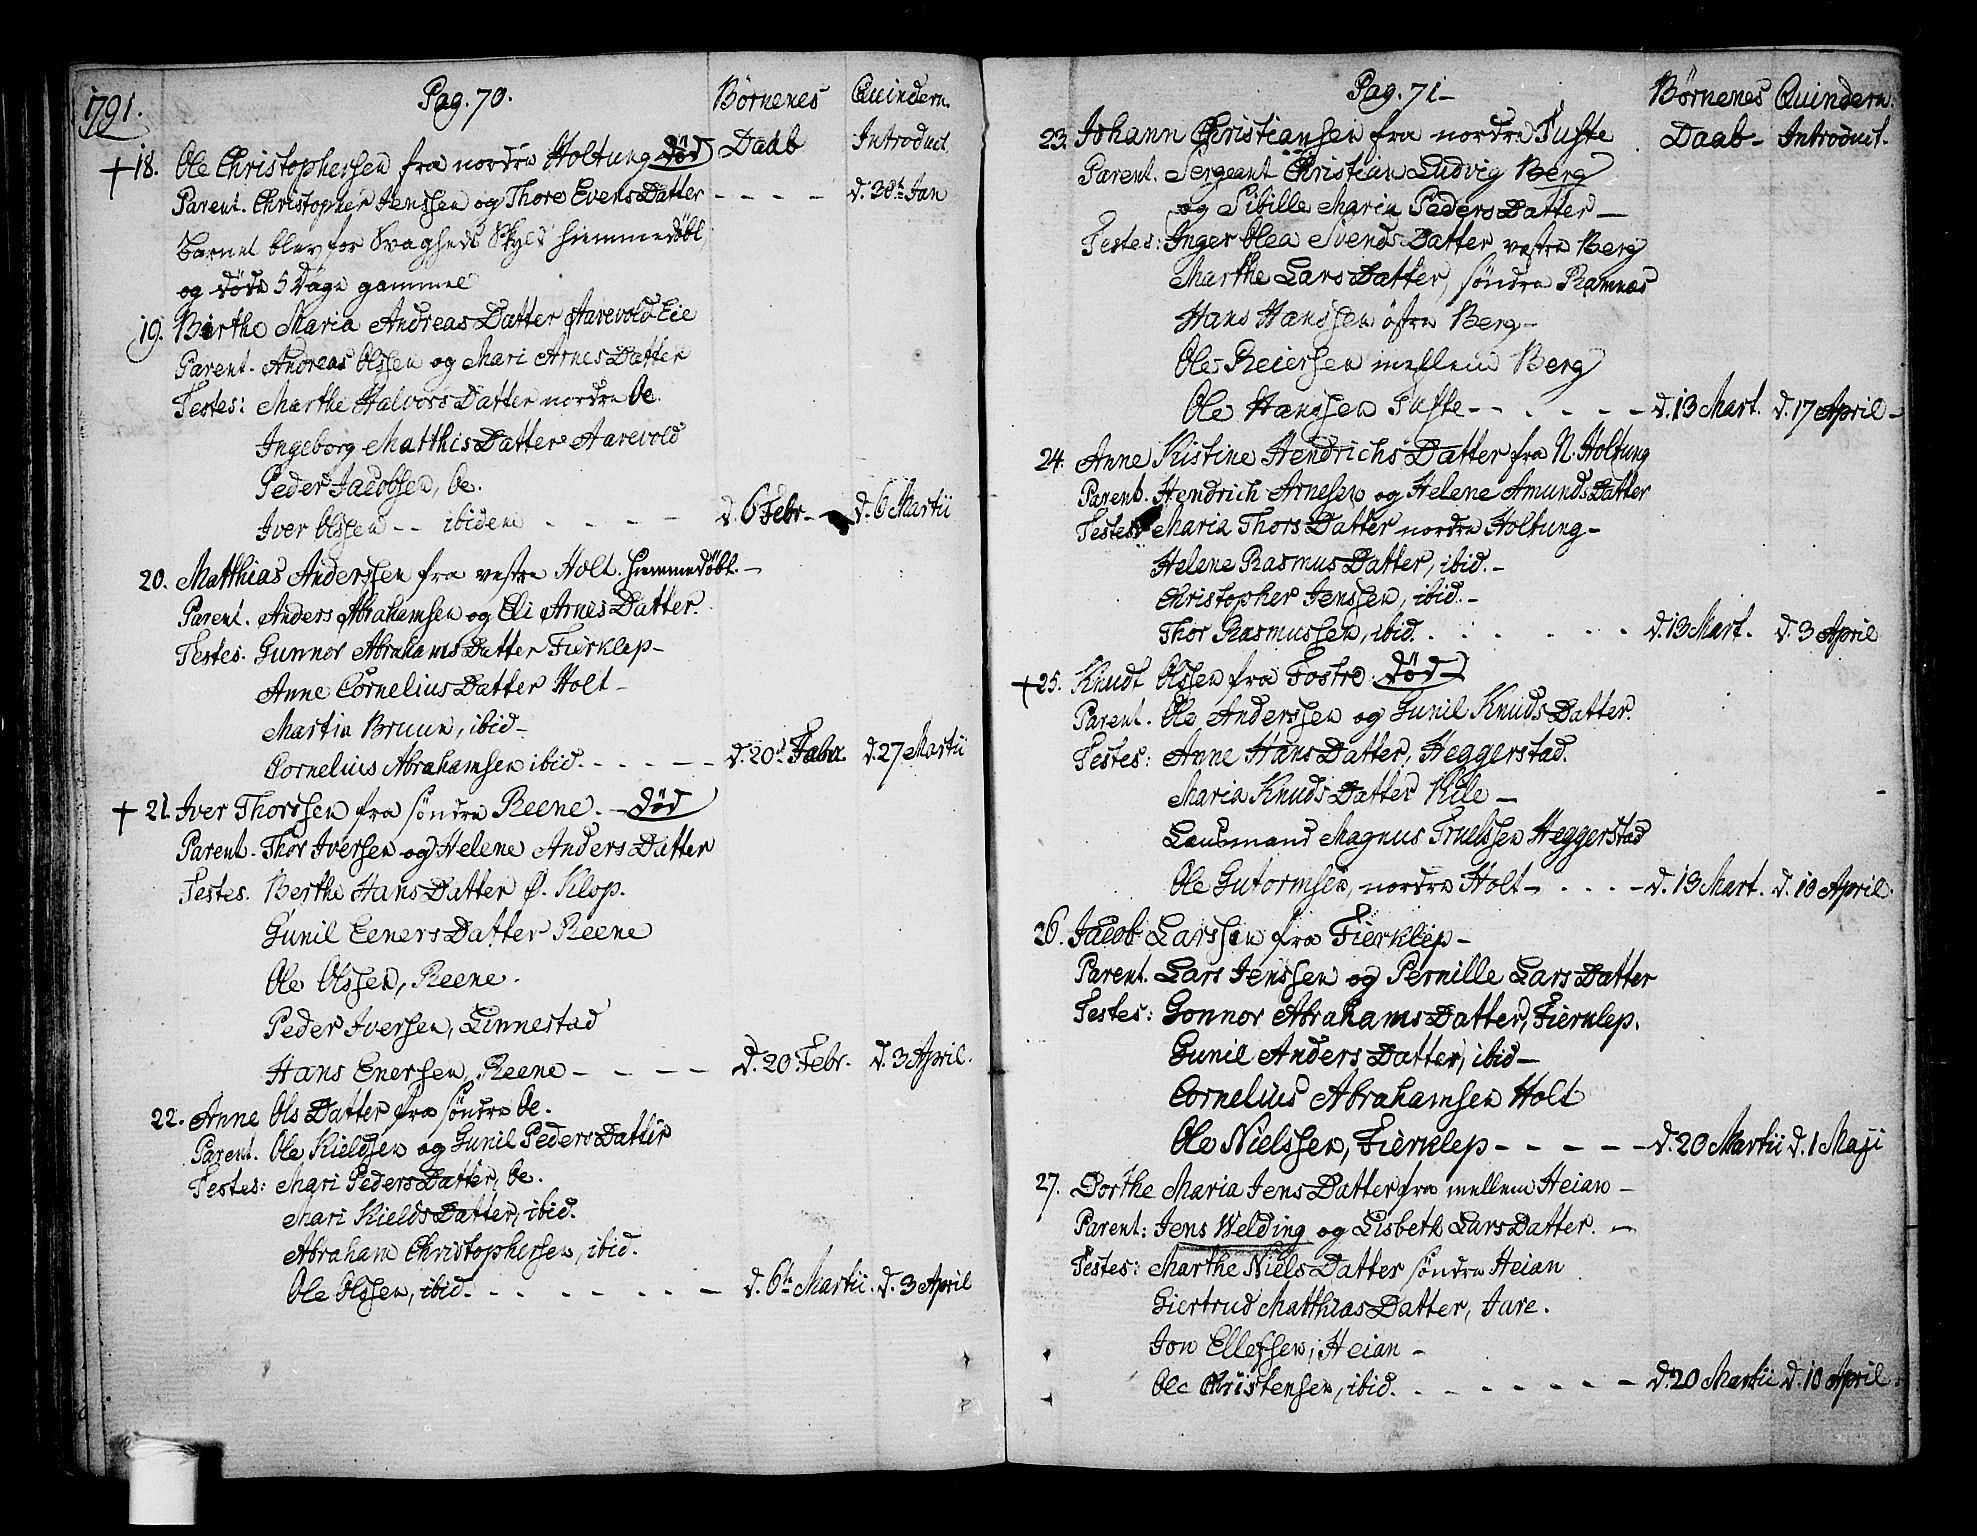 1791.
Pag. 70.
Børnenes Daab
Quindern. Introduct.
+18. Ole Christophersen fra nordre Holtung død
Parent. Christopher Jenssen og Thore Evens Datter - - - - d. 30te Jan
Barnet blev for Svagheds Skyld hiemmedøbt,
og døde 5 Dage gammel
19. Birthe Maria Andreas Datter Aarevold Eie
Parent. Andreas Olssen og Mari Arnes Datter
Testes: Marthe Halvors Datter nordre Oe.
Ingeborg Matthis Datter Aarevold
Peder Jacobsen, Oe.
Iver Olssen - - ibidem - - - - - d. 6 Febr. - d. 6 Martii
20. Matthias Anderssen fra vestre Holt. hiemmedøbt. -
Parent. Anders Abrahamsen og Eli Arnes Datter.
Testes. Gunnor Abrahams Datter Fierklep -
Anne Cornelius Datter Holt -
Martin Bruun, ibid -
Cornelius Abrahamsen ibid. - - - - - d. 20de Febr. d. 27 Martii
+ 21. Iver Thorssen fra søndre Reene. - død
Parent. Thor Iversen og Helene Anders Datter
Testes. Berthe Hans Datter Ø. Klop.
Gunil Eeners Datter Reene
Ole Olssen, Reene.
Peder Iversen, Linnestad
Hans Enersen, Reene - - - - - d. 20 Febr. d. 3 April.
22. Anne Ols Datter fra søndre Oe.
Parent. Ole Kieldsen og Gunil Peders Datter
Testes: Mari Peders Datter, Oe.
Mari Kields Datter, ibid.
Abraham Christophersen, ibid.
Ole Olssen, ibid. - - - - - - - d. 6te Martii. d. 3 April
Pag. 71 -
Børnenes Daab -
Quindern. Introduct.
23. Johann Christiansen fra nordre Tufte
Parent. Sergeant Christian Ludvig Berg
og Sibille Maria Peders Datter -
Testes: Inger Olea Svends Datter vestre Berg
Marthe Lars Datter, søndre Ramnæs
Hans Hanssen østre Berg -
Ole Reiersen mellem Berg
Ole Hanssen Tufte - - - - - - d. 13 Mart. d. 17 April -
24. Anne Kistine Hendrichs Datter fra N. Holtung
Parent. Hendrich Arnesen og Helene Amunds Datter
Testes: Maria Thors Datter nordre Holtung -
Helene Rasmus Datter, ibid. -
Christopher Jenssen, ibid. -
Thor Rasmussen, ibid. - - - - - - d. 13 Mart. d. 3 April
+ 25. Knudt Olssen fra Fostre. død -
Parent. Ole Anderssen og Gunil Knuds Datter.
Testes: Anne Hans Datter, Heggerstad.
Maria Knuds Datter Kile -
Lensmand Magnus Truelssen Heggerstad
Ole Gutormsen, nordre Holt - - - - - d. 13 Mart. d. 10 April.
26. Jacob Larssen fra Fierklep -
Parent. Lars Jenssen og Pernille Lars Datter
Testes: Gonnor Abrahams Datter, Fierklep.
Gunil Anders Datter, ibid -
Cornelius Abrahamsen Holt
Ole Nielssen, Fierklep - - - - - d. 20 Martii d. 1 Maji
27. Dorthe Maria Jens Datter fra mellem Heian -
Parent: Jens Welding og Lisbeth Lars Datter. -
Testes: Marthe Niels Datter søndre Heian
Giertrud Matthias Datter, Jare.
Jon Ellefsen, Heian -
Ole Christensen, ibid. - - - - - - - d. 20 Martii d. 10 April.